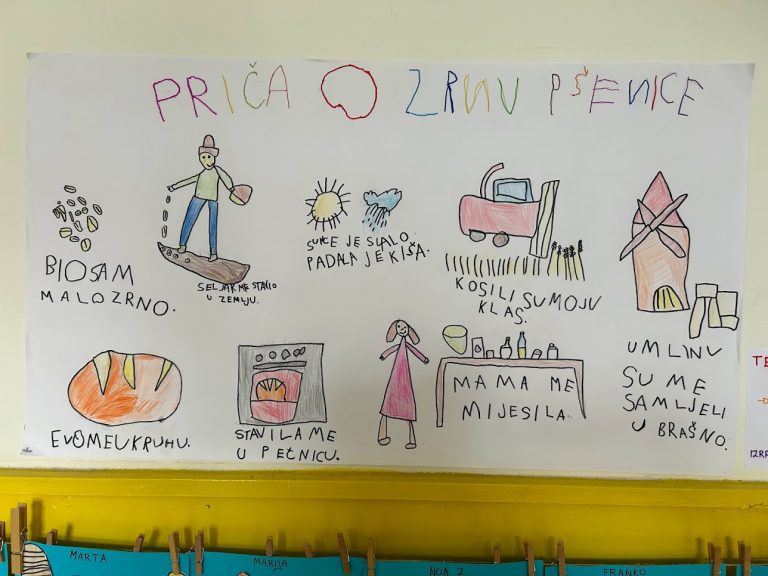 PRIČA O ZRNU PŠENICE
BIO SAM
MALO ZRNO.
SELJAK ME STAVIO
U ZEMLJU.
SUNCE JE SJALO
PADALA JE KIŠA.
KOSILI SU MOJU
KLAS.
U MLINU
SU ME
SAMLJELI
U BRAŠNO.
MAMA ME
MIJESILA.
STAVILA ME
U PEĆNICU.
EVO ME U KRUHU.
TE
IZRA
MARTA
MARIJA
NOA Z.
FRANKO